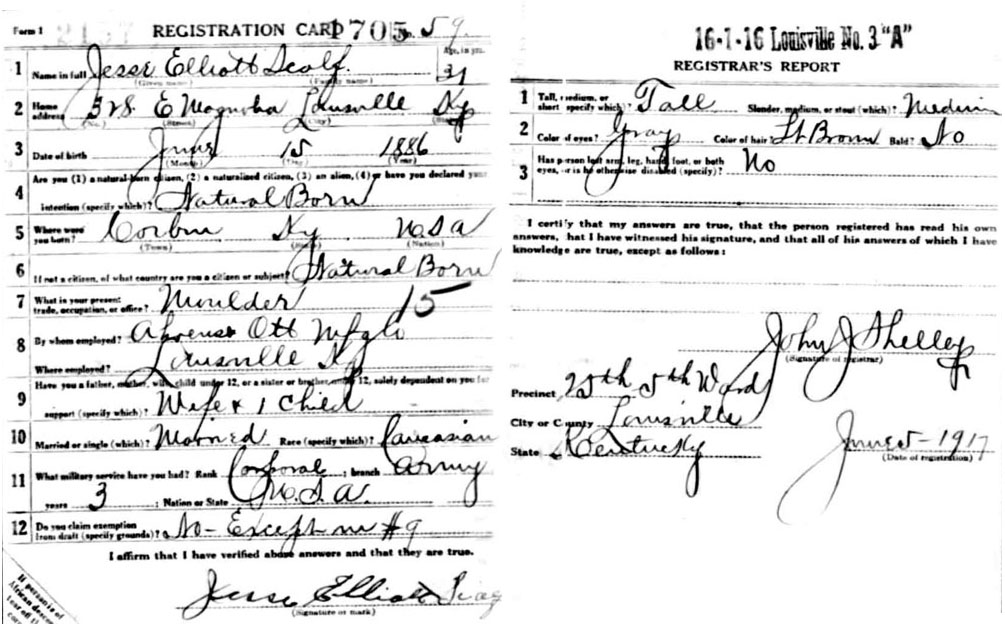 Form 1 REGISTRATION CARD 1705 No. 59
1 Name in full Jesse Elliott Scalf Age, in yrs. 31
(Given name) (Family name)
2 Home address 528 E Magnolia Louisville Ky
(No.) (Street) (City) (State)
3 Date of birth June 15 1886
(Month) (Day) (Year)
4 Are you (1) a natural-born citizen, (2) a naturalized citizen, (3) an alien, (4) or have you declared your
intention (specify which)? Natural Born
5 Where were you born? Corbin Ky USA
(Town) (State) (Nation)
6 If not a citizen, of what country are you a citizen or subject? Natural Born
7 What is your present trade, occupation, or office? Moulder 15
8 By whom employed? Ahrens & Ott Mfg Co
Where employed? Louisville Ky
9 Have you a father, mother, wife, child under 12, or a sister or brother under 12, solely dependent on you for
support (specify which)? Wife & 1 child
10 Married or single (which)? Married Race (specify which)? Caucasian
11 What military service have you had? Rank Corporal ; branch Army
years 3 ; Nation or State U.S.A.
12 Do you claim exemption from draft (specify grounds)? No - Except in #9
I affirm that I have verified above answers and that they are true.
Jesse Elliott
(Signature or mark)
If person is of
African descent,
tear off this
16-1-16 Louisville No. 3 "A"
REGISTRAR'S REPORT
1 Tall, medium, or short (specify which)? Tall Slender, medium, or stout (which)? Medium
2 Color of eyes? Gray Color of hair? Lt Brown Bald? No
3 Has person lost arm, leg, hand, foot, or both eyes, or is he otherwise disabled (specify)? No
I certify that my answers are true, that the person registered has read his own
answers, that I have witnessed his signature, and that all of his answers of which I have
knowledge are true, except as follows:
John J Shelley
(Signature of registrar)
Precinct 25th 5th Ward
City or County Louisville
State Kentucky June 5-1917
(Date of registration)